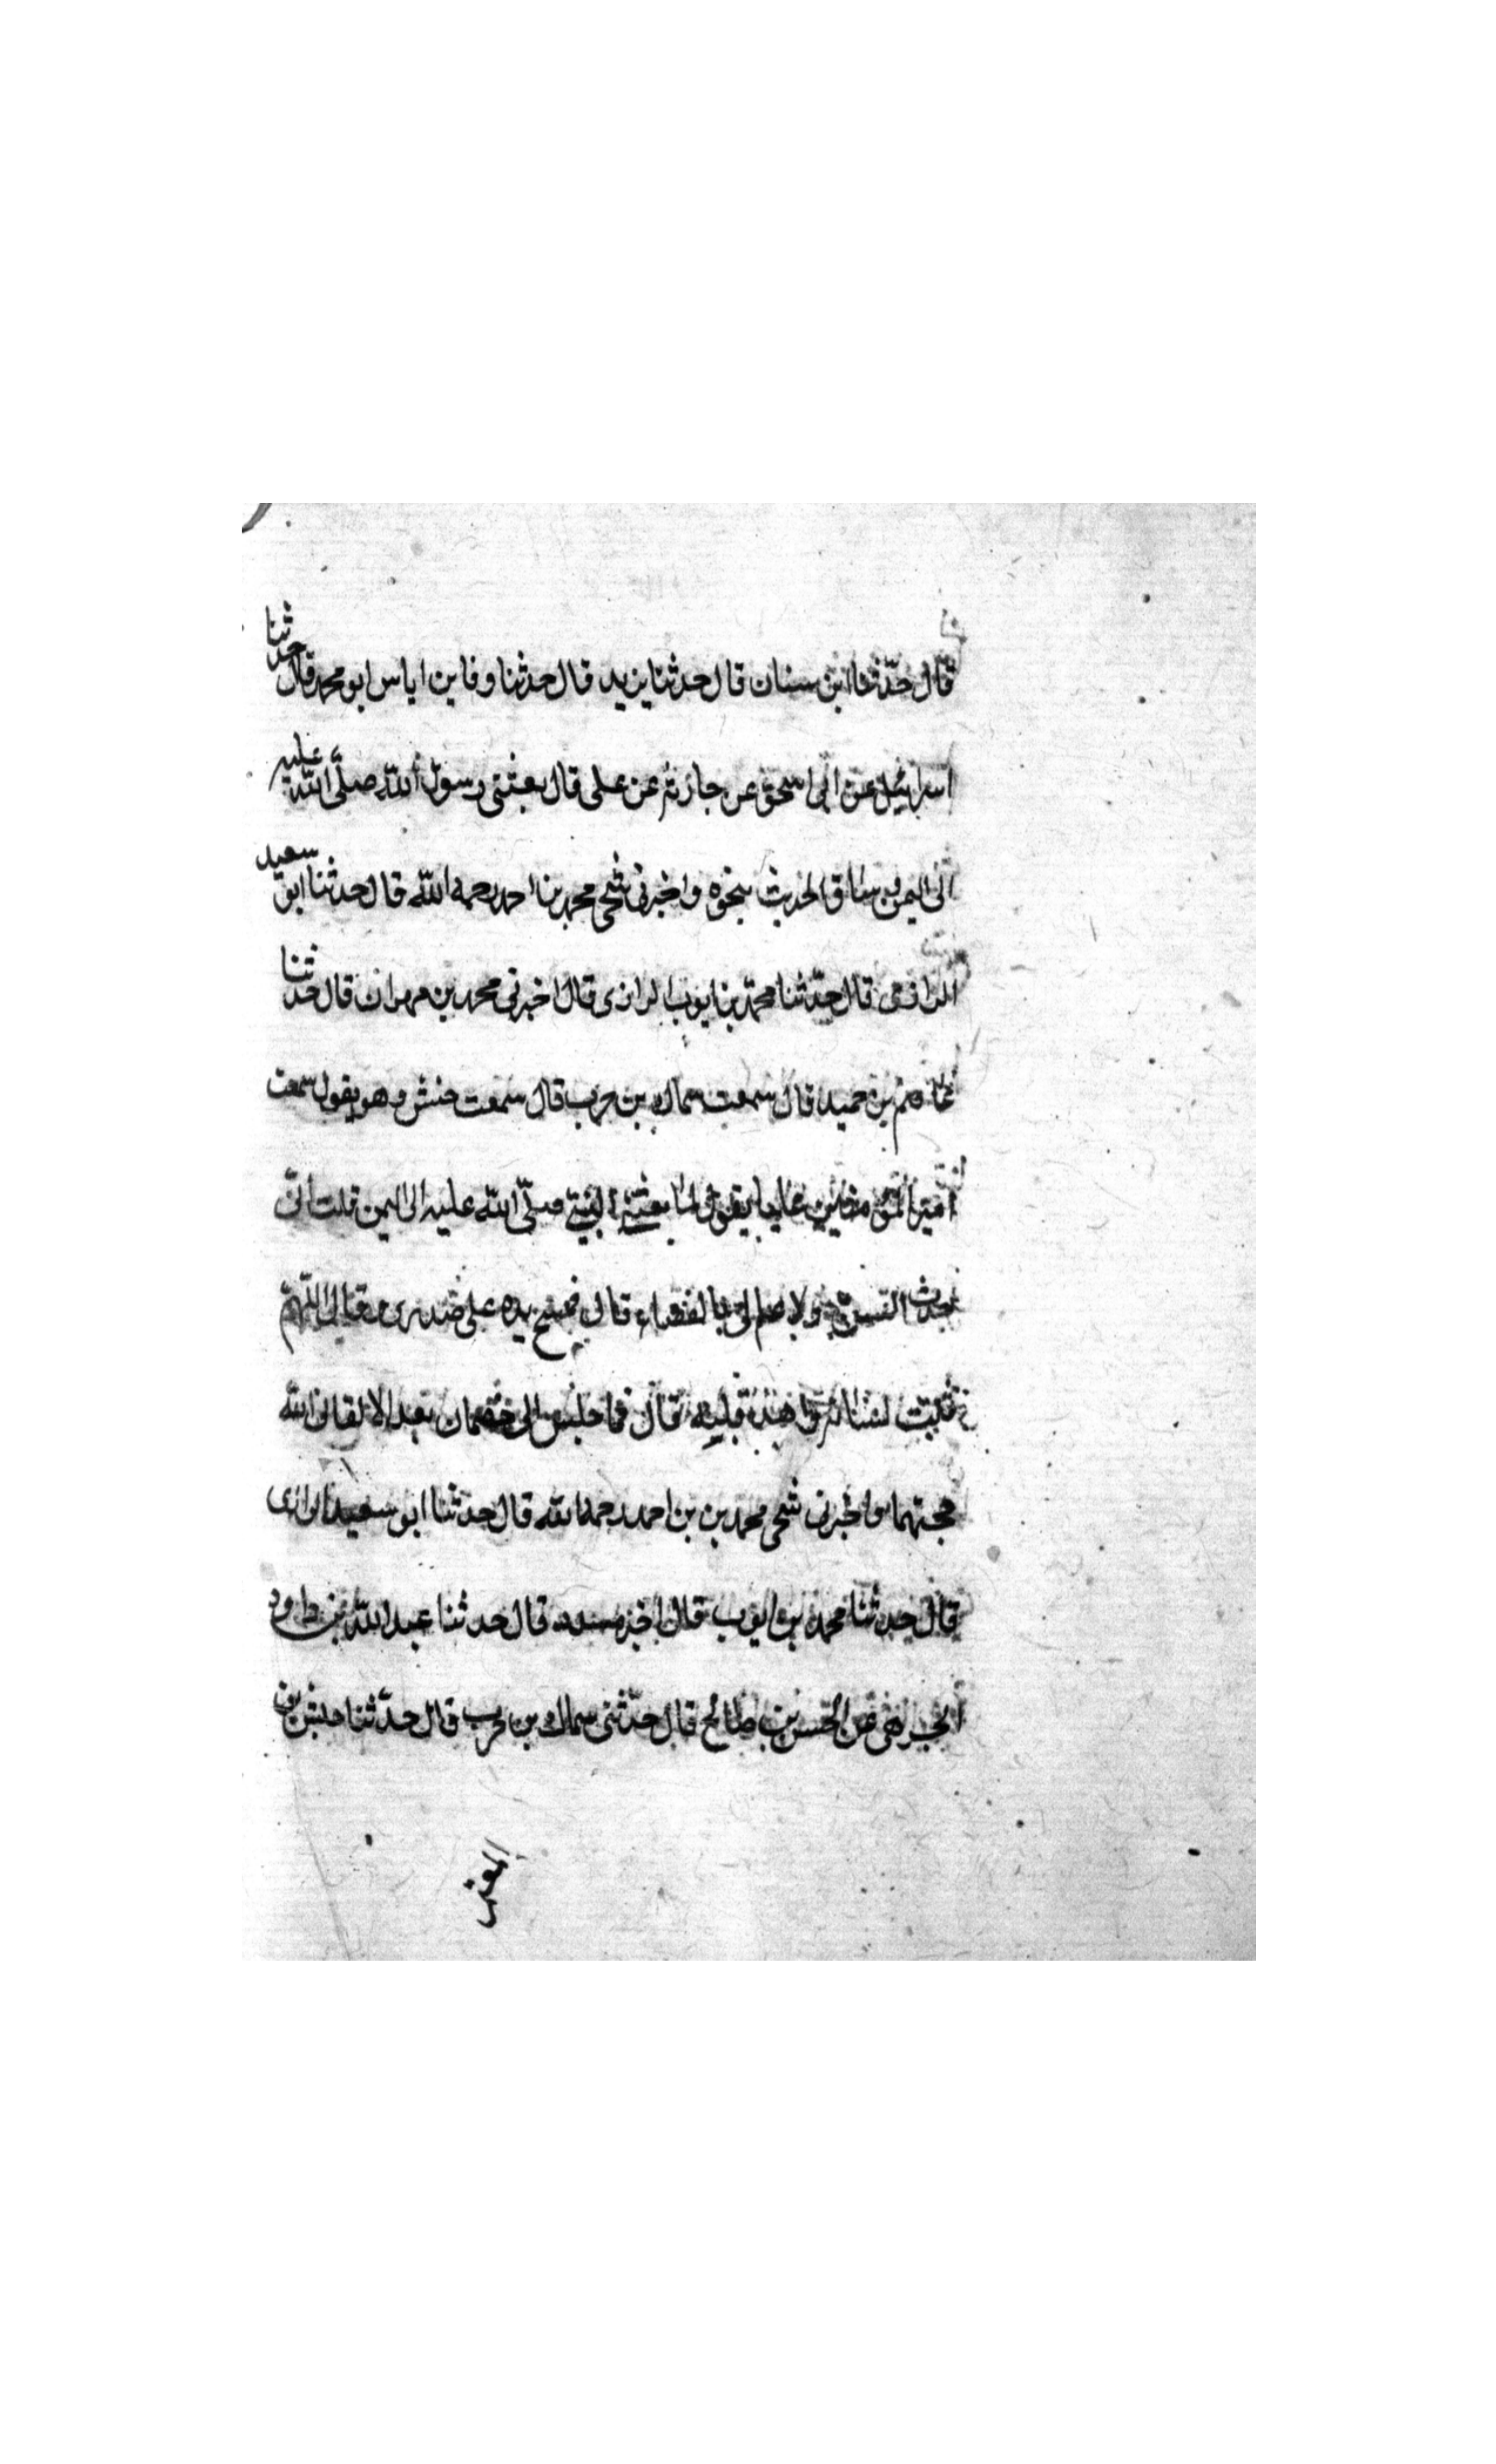 قال حدثنا ابن سنان قال حدثنا يزيد قال حدثنا وفا بن اياس ابو محمد قال حدثنا
اسرائيل عن ابى اسحق عن حارثه عن على قال بعثنى رسول الله صلى الله عليه
الى اليمن وساق الحديث بنحوه واخبرنى شيخى محمد بن احمد رحمه الله قال حدثنا ابو سعيد
الرازى قال حدثنا محمد بن ايوب الرازى قال اخبرنى محمد بن مهران قال حدثنا
بن حميد قال سمعت سماك بن حرب قال سمعت حنش وهو يقول سمعت
امير المؤمنين عليا يقول لما بعثنى النبى صلى الله عليه الى اليمن قلت انى
حديث السن ولا علم لى بالقضاء قال فمسح يده على صدرى وقال اللهم
ثبت لسانه واهد قلبه قال فما جلس الى خصمان بعد الا لقانى الله
حجتهما واخبرنى شيخى محمد بن بن احمد رحمه الله قال حدثنا ابو سعيد الرازى
قال حدثنا محمد بن ايوب قال اخبر مسدد قال حدثنا عبد الله بن داود
عن الحسن بن صالح قال حدثنى سماك بن حرب قال حدثنا حنش بن